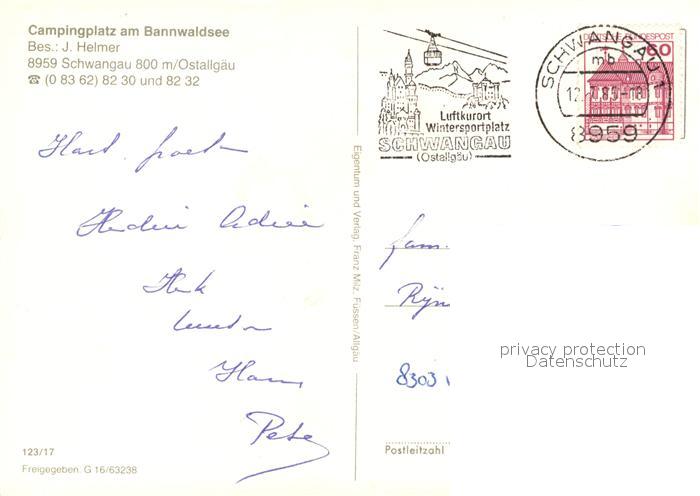 Campingplatz am Bannwaldsee
Bes.: J. Helmer
8959 Schwangau 800 m/Ostallgäu
☎ (0 83 62) 82 30 und 82 32
Luftkurort
Wintersportplatz
SCHWANGAU
(Ostallgäu)
SCHWANGAU
mb
8959
DEUTSCHE BUNDESPOST
60
Hart. groet
Henk
Hans
Pete
Eigentum und Verlag, Franz Milz, Füssen/Allgäu
fam.
8303
privacy protection
Datenschutz
Postleitzahl
123/17
Freigegeben. G 16/63238